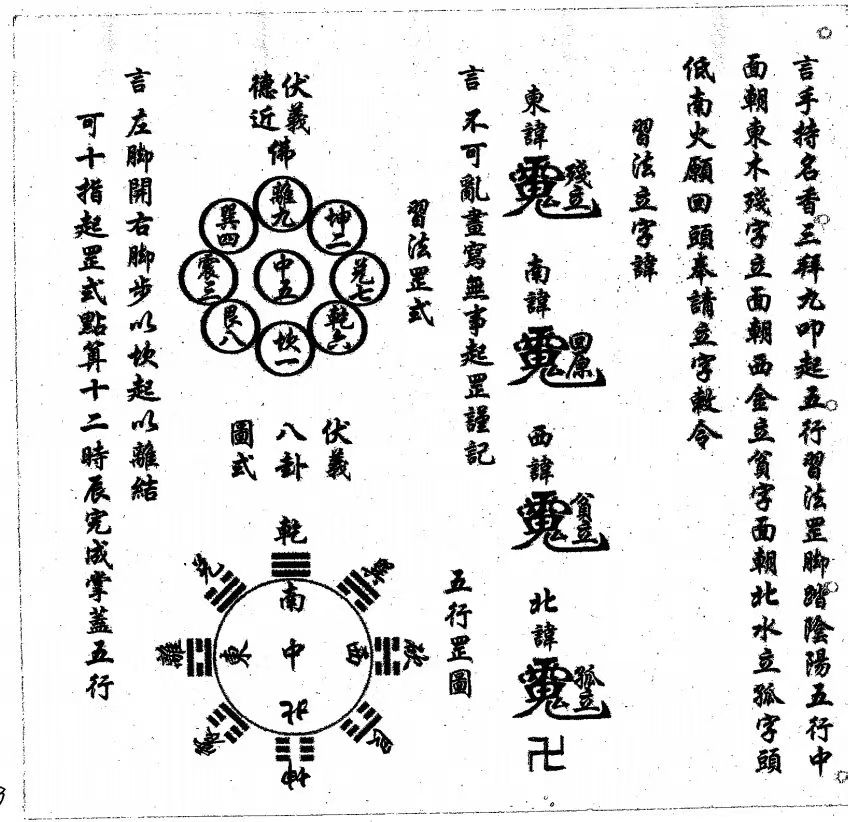 言手持名香三拜九叩起五行習法罡脚踏陰陽五行中
面朝東木殘字立面朝西金立貧字面朝北水立孤字頭
低南火願回頭奉請立字敕令
習法立字諱
東諱
殘立
南諱
回原
西諱
貧立
北諱
孤立
卍
言不可亂畫寫無事起罡謹記
五行罡圖
習法罡式
伏義
德近
佛
離九
坤二
兌七
乾六
坎一
艮八
震三
巽四
中五
伏義
八卦
圖式
乾
南
中
北
東
西
兌
離
坤
言左脚開右脚步以坎起以離結
可十指起罡式點算十二時辰完成掌蓋五行